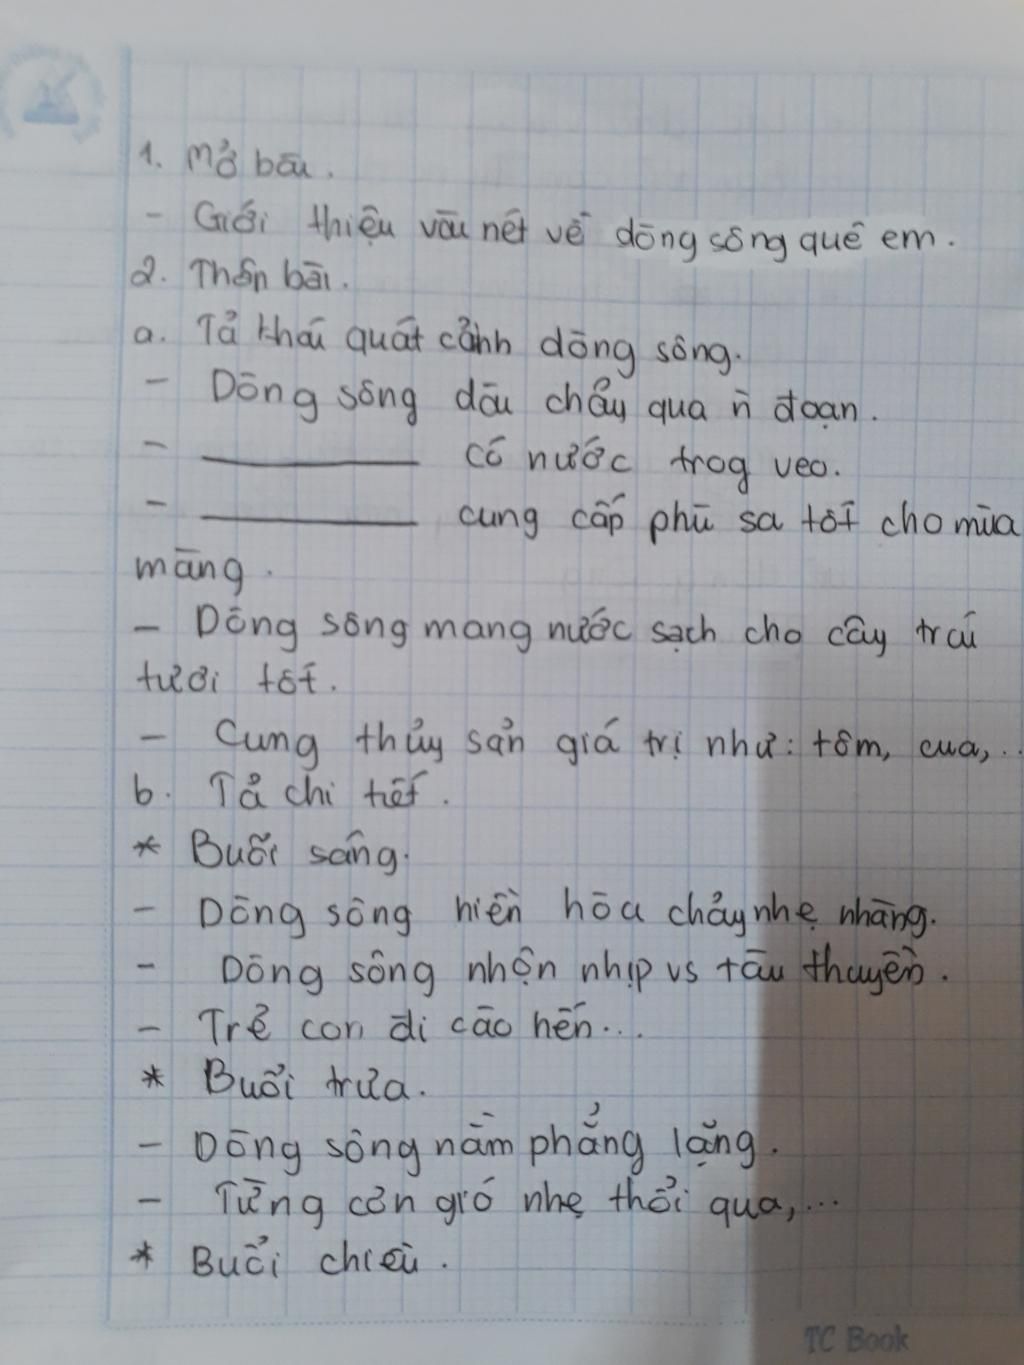 1. Mở bài.
- Giới thiệu vài nét về dòng sông quê em.
2. Thân bài.
a. Tả khái quát cảnh dòng sông.
- Dòng sông dài chảy qua ñ đoạn.
- ________ có nước trog veo.
- ________ cung cấp phù sa tốt cho mùa
màng.
- Dòng sông mang nước sạch cho cây trái
tươi tốt.
- Cung thủy sản giá trị như: tôm, cua,...
b. Tả chi tiết.
* Buổi sáng.
- Dòng sông hiền hòa chảy nhẹ nhàng.
- Dòng sông nhộn nhịp vs tàu thuyền.
- Trẻ con đi cào hến...
* Buổi trưa.
- Dòng sông nằm phẳng lặng.
- Từng cơn gió nhẹ thổi qua,...
* Buổi chiều.
TC Book